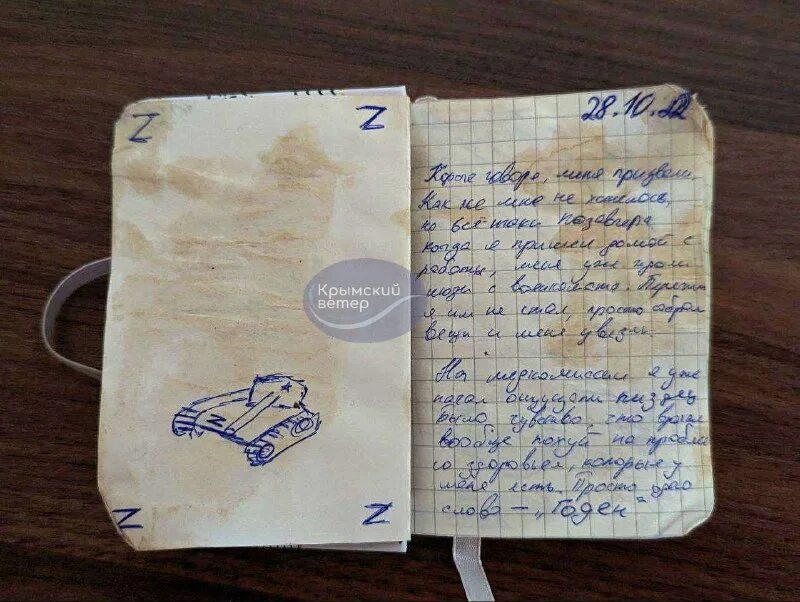 Z
Z
Z
Z
Z
Крымский
ветер
28.10.22
Короче говоря, меня призвали.
Как не мне не хотелось,
но всё таки позавчера
когда я пришёл домой с
работы, меня уже ждали
люди с военкомата. Перечить
я им не стал, просто собрал
вещи и меня увезли.
На медкомиссии я уже
начал ощущать пиздец
было чувство, что врачам
вообще похуй на проблемы
со здоровьем, которые у
меня есть. Просто одно
слово – „Годен“